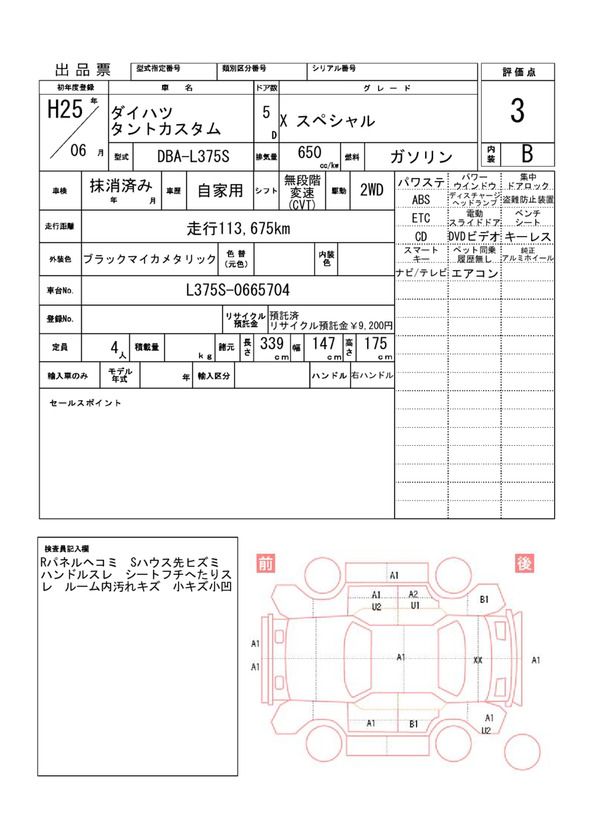 出品票
型式指定番号
類別区分番号
シリアル番号
評価点
初年度登録
車 名
ドア数
グレード
H25 年
06 月
ダイハツ
タントカスタム
5
D
X スペシャル
3
型式
DBA-L375S
排気量
650
cc/kw
燃料
ガソリン
内装
B
車検
抹消済み
年 月
車歴
自家用
シフト
無段階
変速
(CVT)
駆動
2WD
走行距離
走行113,675km
外装色
ブラックマイカメタリック
色替
(元色)
内装
色
車台No.
L375S-0665704
登録No.
リサイクル
預託金
預託済
リサイクル預託金￥9,200円
定員
4
人
積載量
kg
諸元
長さ
339
cm
幅
147
cm
高さ
175
cm
輸入車のみ
モデル
年式
年
輸入区分
ハンドル
右ハンドル
パワステ
パワー
ウインドウ
集中
ドアロック
ABS
ディスチャージ
ヘッドランプ
盗難防止装置
ETC
電動
スライドドア
ベンチ
シート
CD
DVDビデオ
キーレス
スマート
キー
ペット同乗
履歴無し
純正
アルミホイール
ナビ/テレビ
エアコン
セールスポイント
検査員記入欄
Rパネルヘコミ Sハウス先ヒズミ
ハンドルスレ シートフチへたりス
レ ルーム内汚れキズ 小キズ小凹
前
後
A1
A1
A2
U2
U1
B1
A1
A1
A1
XX
A1
A1
B1
A1
U2